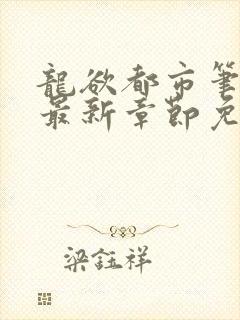 龍欲都市筆
最新章節免
梁鈺祥